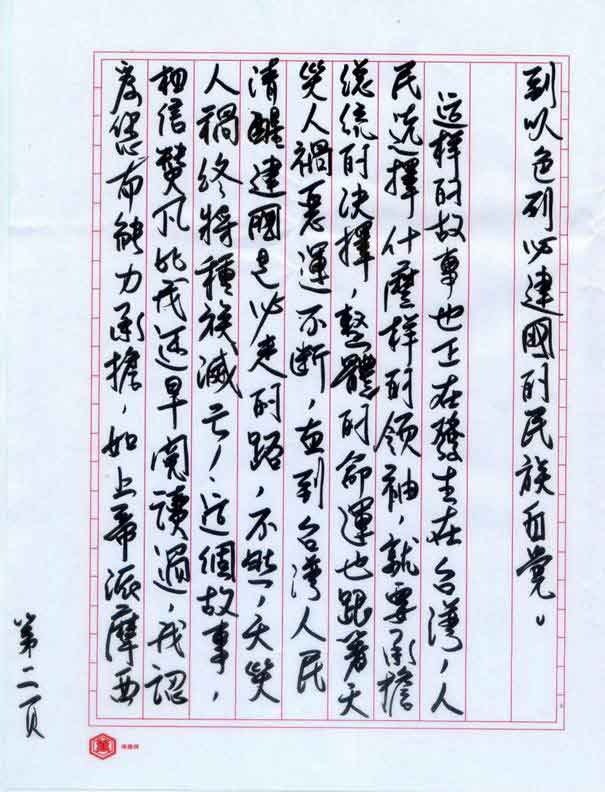 到以色列必建國的民族自覺。
這样的故事也正在發生在台灣，人
民选擇什麼样的领袖，就要承擔
總統的決擇，整體的命運也跟著天
災人禍惡運不断，直到台湾人民
清醒建國是必走的路，不然，天災
人禍終將種族滅亡，這個故事，
相信贊凡比我还早阅讀過，我認
為您有能力承擔，如上帝派摩西
第二頁